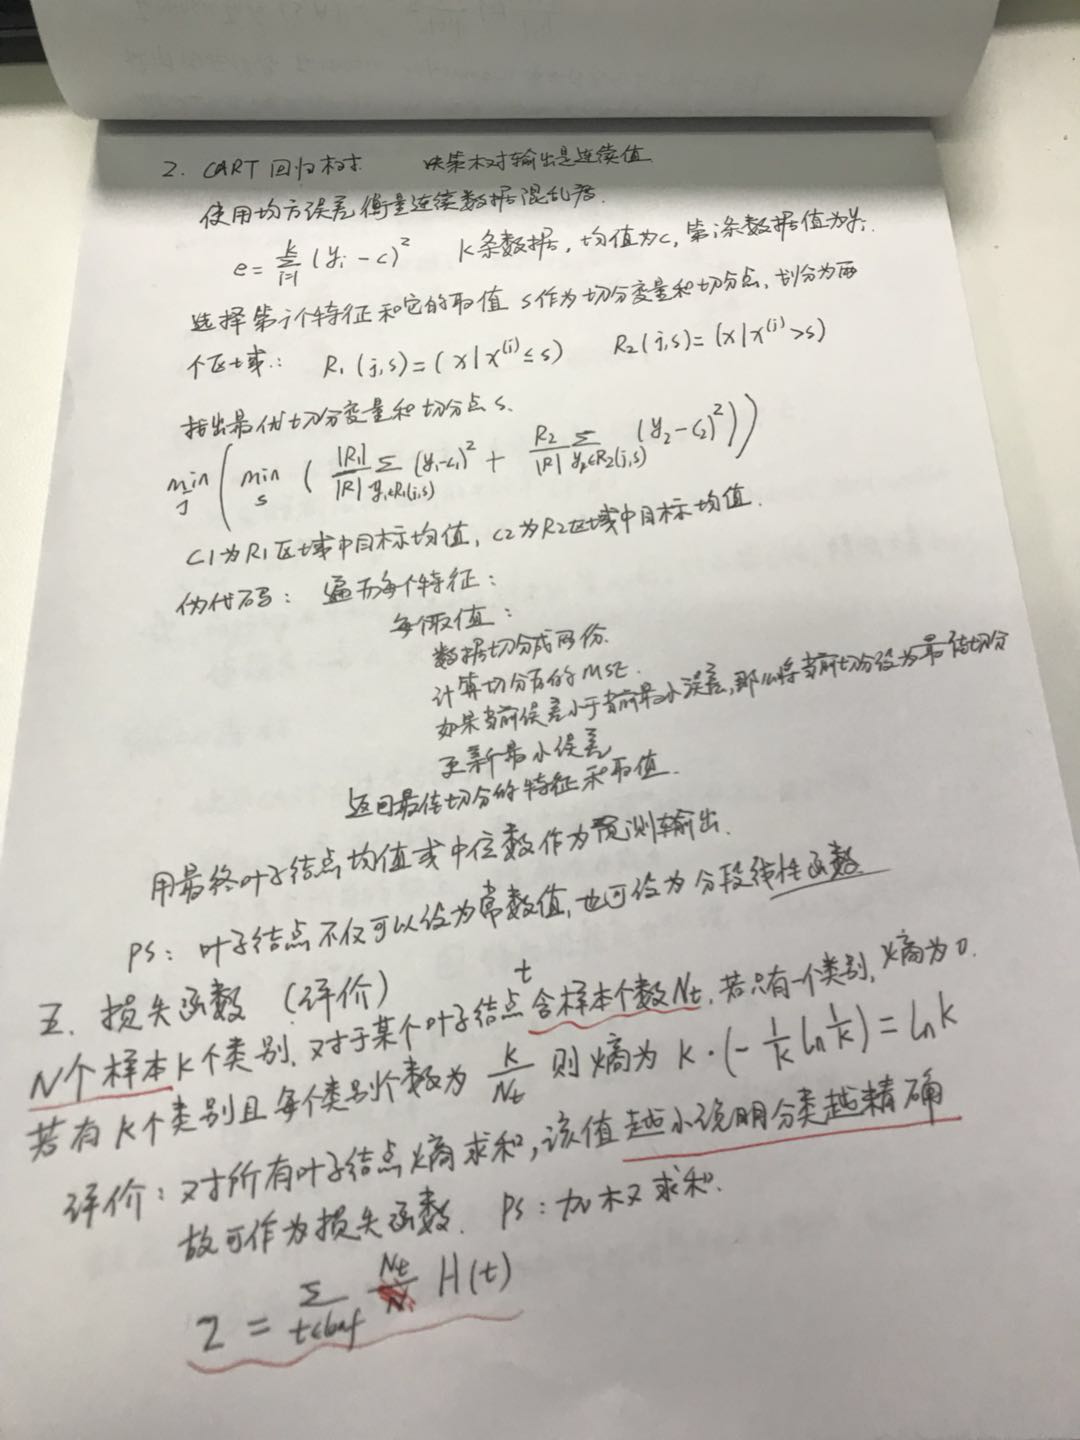 2. CART 回归树. 决策树输出是连续值
使用均方误差衡量连续数据混乱度.
e = Σ_{i=1}^{k} (yi - c)² k条数据, 均值为c, 第i条数据值为yi.
选择第i个特征和它的取值 s作为切分变量和切分点, 划分为两
个区域: R1 (j,s)=(x|x^(j) ≤ s) R2(j,s)=(x|x^(j) >s)
找出最优切分变量和切分点s.
min_j ( min_s ( |R1|/|R| Σ_{y1∈R1(j,s)} (y1-c1)² + R2/|R| Σ_{y2∈R2(j,s)} (y2-c2)² ))
C1为R1区域中目标均值, C2为R2区域中目标均值.
伪代码: 遍历每个特征:
每个取值:
数据切分成两份.
计算切分后的MSE.
如果当前误差小于当前最小误差, 那么将当前切分设为最佳切分
更新最小误差
返回最佳切分的特征和取值.
用最终叶子结点均值或中位数作为预测输出.
PS: 叶子结点不仅可以设为常数值, 也可设为分段线性函数
五. 损失函数 (评价)
N个样本K个类别. 对于某个叶子结点t含样本个数Nt. 若只有一个类别, 熵为0.
若有K个类别且每个类别个数为 k/Nt 则熵为 K·(- 1/k ln 1/k) = ln K
评价: 对所有叶子结点熵求和, 该值越小说明分类越精确
故可作为损失函数. PS: 加权求和.
2 = Σ_{t∈leaf} Nt/N H(t)